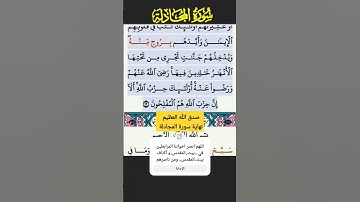 سورة المجادلة
أو عشيرتهم أولئك كتب في قلوبهم
الإيمن وأيدهم بروح منه
ويدخلهم جنت تجرى من تحتها
الأنهر خلدين فيها رضى الله عنهم
ورضوا عنه أولئك حزب الله ألا
إن حزب الله هم المفلحون
صدق الله العظيم
نهاية سورة المجادلة
اللهم انصر اخواننا المرابطين
في بيت المقدس و أكناف
بيت المقدس، ومن ناصرهم